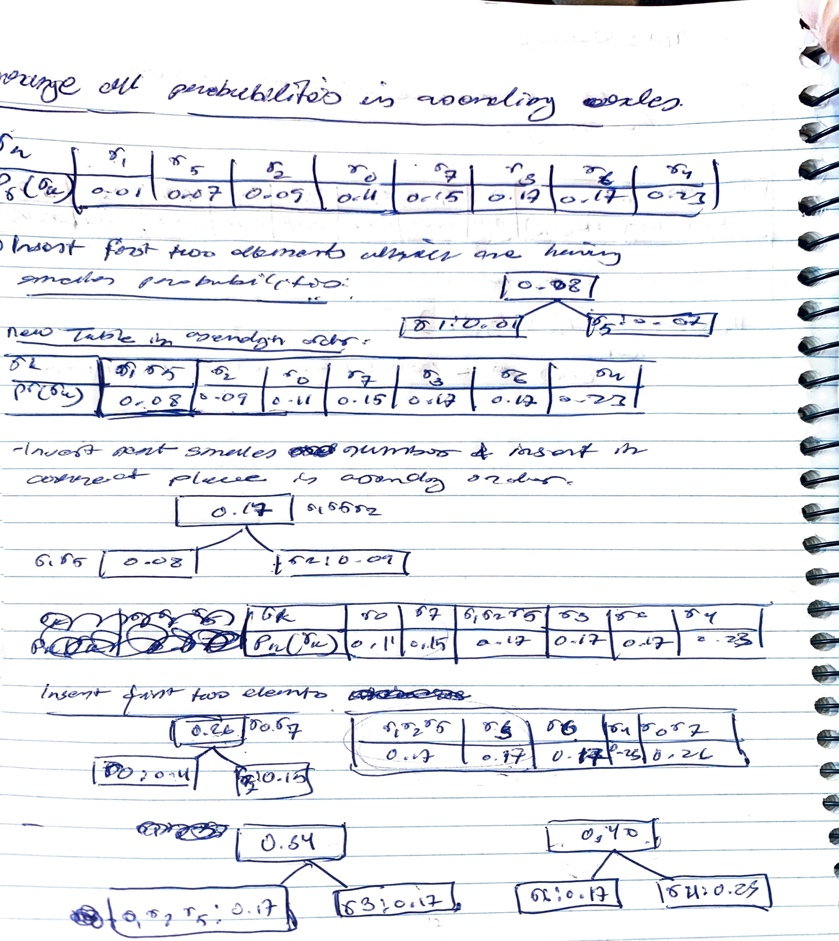 all probabilities in asending
r1 r5 r2 r0 r7 r3 r6 r4
Pr(rk) 0.01 0.07 0.09 0.11 0.15 0.17 0.17 0.23
Insert first two elements which are having
smalles probabilities:
0.08
r1:0.01 r5:0.07
new Table in asendgn order:
rk r1 r5 r2 r0 r7 r3 r6 r4
Pr(rk) 0.08 0.09 0.11 0.15 0.17 0.17 0.23
-Insert next smalles number & insert in
place is asendg order.
0.17 r1r5r2
r1r5 0.08 r2:0.09
rk r0 r7 r1r2r5 r3 r6 r4
Pr(rk) 0.11 0.15 0.17 0.17 0.17 0.23
insert first two elements
0.26 r0r7 r1r2r5 r3 r6 r4 r0r7
r0:0.11 r7:0.15 0.17 0.17 0.17 0.23 0.26
0.34 0,40
r1 r2 r5:0.17 r3:0.17 r6:0.17 r4:0.23